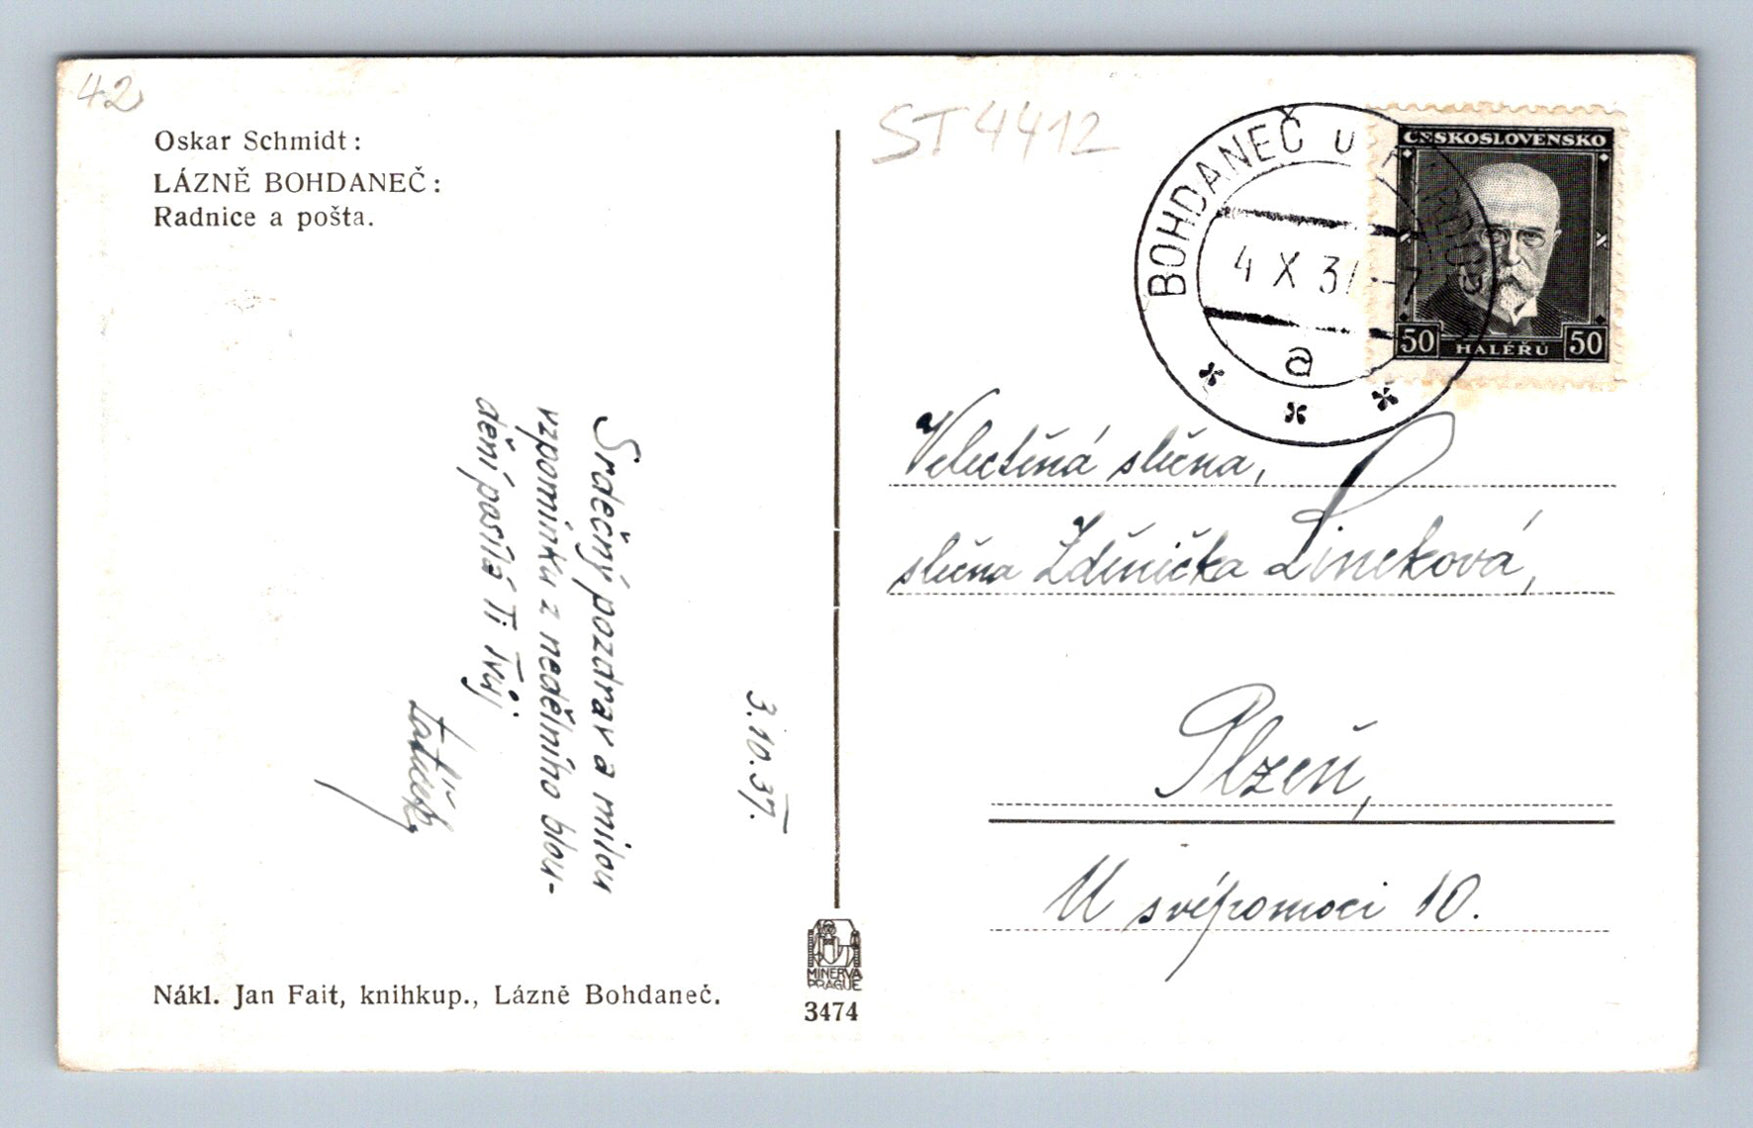 42
Oskar Schmidt:
LÁZNĚ BOHDANEČ:
Radnice a pošta.
ST4412
BOHDANEČ U PARDUB
4 X 37 -7
a
ČESKOSLOVENSKO
50 HALÉŘŮ 50
3.10.37.
Srdečný pozdrav a milou
vzpomínku z nedělního blou-
dění posílá Ti Tvůj
Velectěná slečna,
slečna Zdenička Lineková,
Plzeň,
U svépomoci 10.
Nákl. Jan Fait, knihkup., Lázně Bohdaneč.
MINERVA
PRAGUE
3474